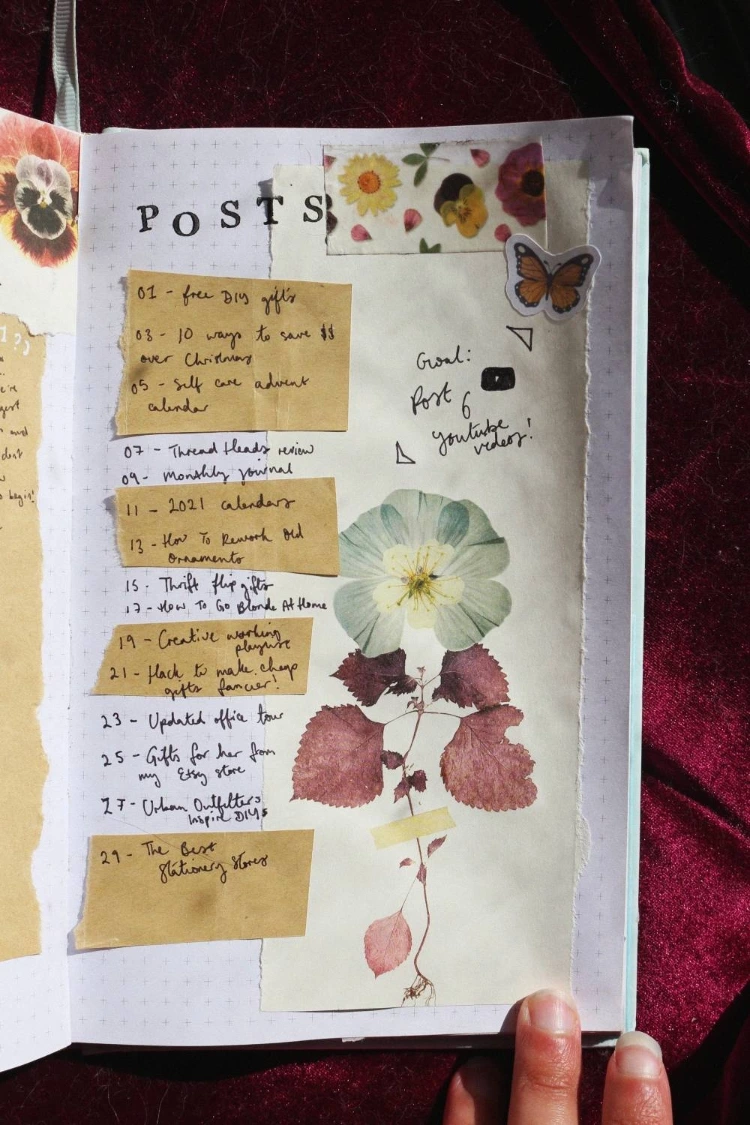 POSTS
01 - free DIY gifts
03 - 10 ways to save $$
over Christmas
05 - Self care advent
calendar
07 - Thread Heads review
09 - monthly journal
11 - 2021 calendars
13 - How To Rework Old
Ornaments
15 - Thrift flip gifts
17 - How To Go Blonde At Home
19 - Creative working
playlist
21 - Hack to make cheap
gifts fancier!
23 - Updated office tour
25 - Gifts for her from
my Etsy store
27 - Urban Outfitters
Inspired DIYs
29 - The Best
Stationery Stores
Goal:
Post 6
youtube
videos!